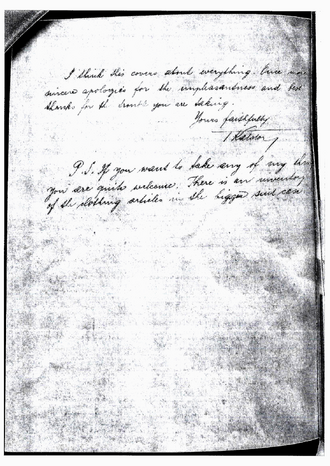 I think this covers about everything. Once more
sincere apologies for the unpleasantness and best
thanks for the trouble you are taking.
Yours faithfully
P.S. If you want to take any of my
You are quite welcome. There is an inventory
of the clothing articles in the bigger suit case